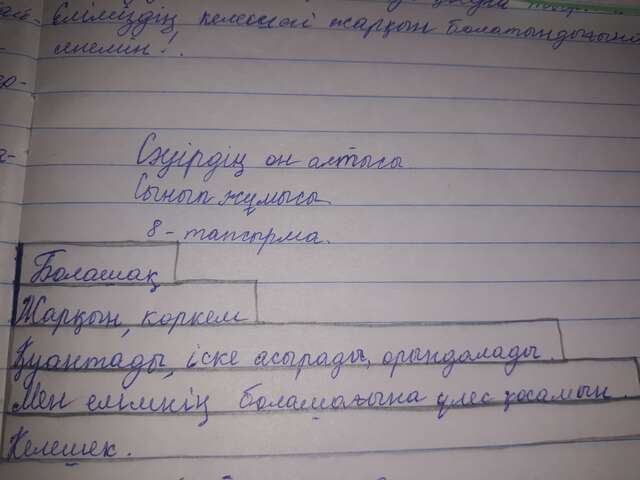 Еліміздің келешегі жарқын болатындығына
сенемін!
Сәуірдің он алтысы
Сынып жұмысы
8-тапсырма.
Болашақ
Жарқын, көркем
Қуантады, іске асырады, орындалады.
Мен елімнің болашағына үлес қосамын.
Келешек.